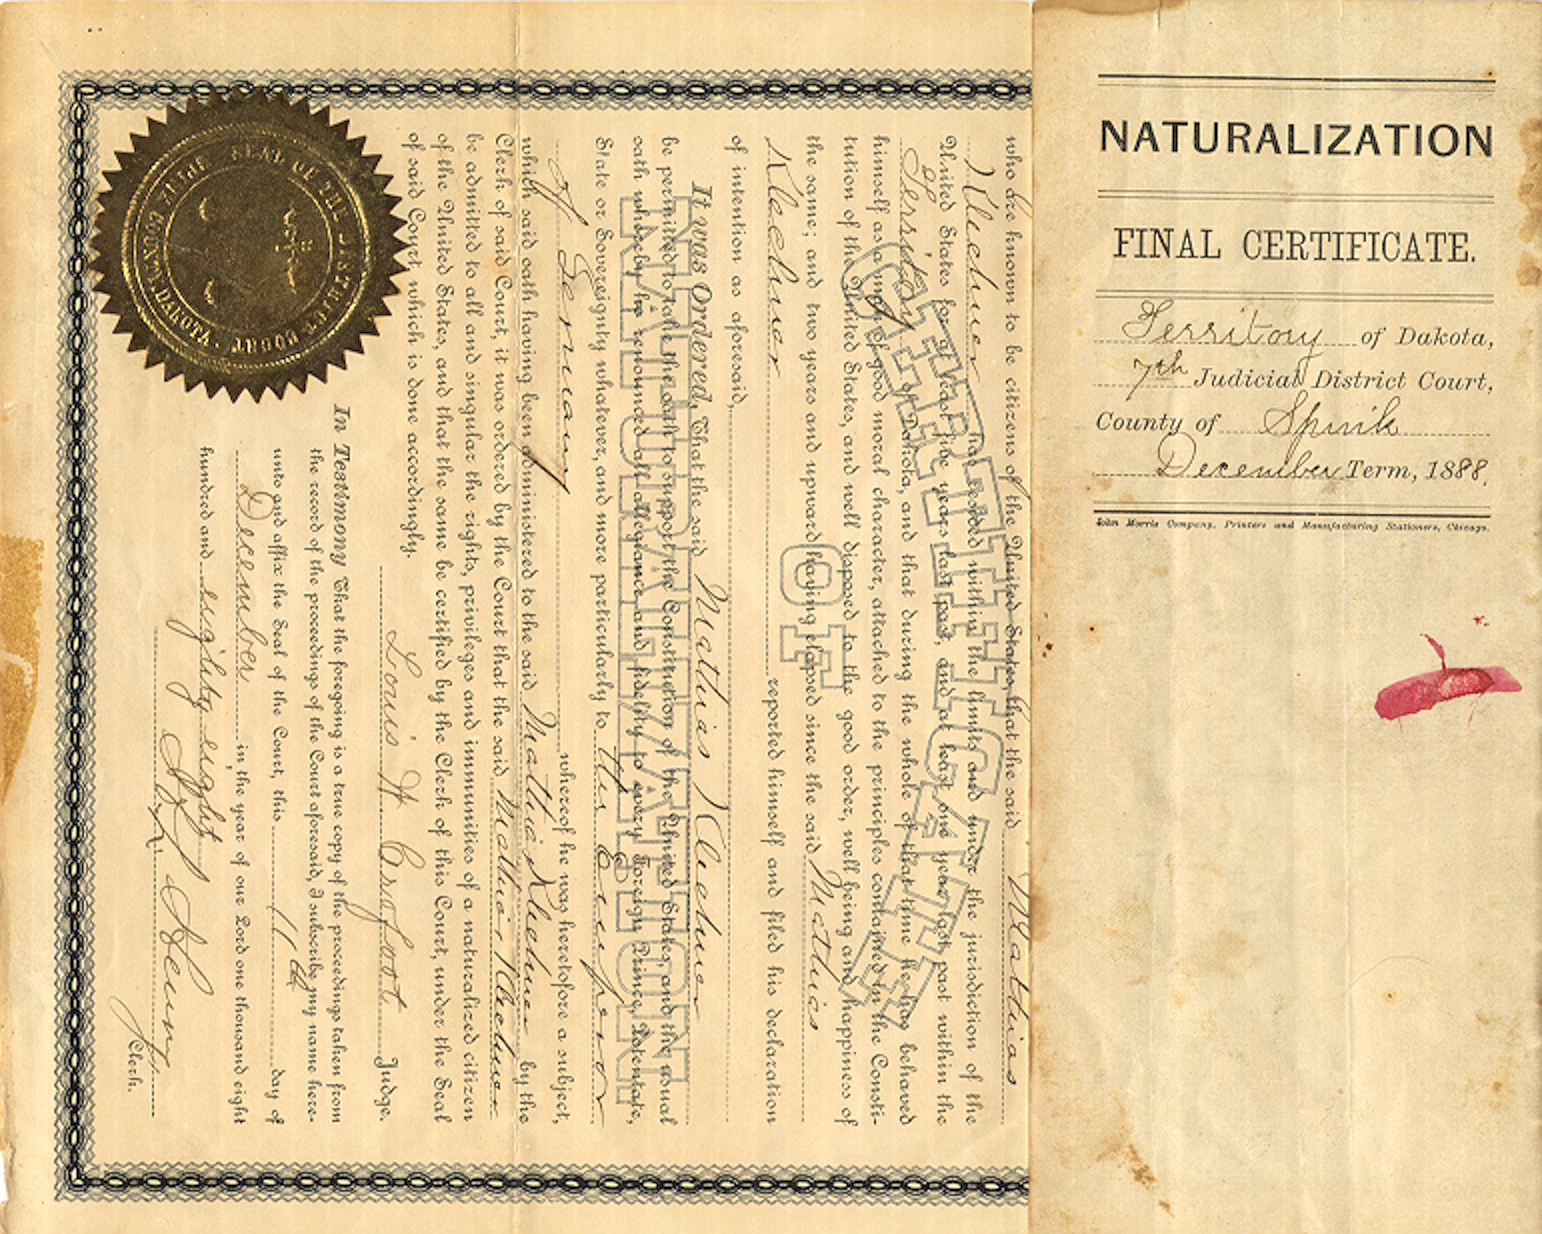 NATURALIZATION
FINAL CERTIFICATE.
Territory of Dakota,
7th Judicial District Court,
County of Spink
December Term, 1888.
John Morris Company, Printers and Manufacturing Stationers, Chicago.
who are known to be citizens of the United States, that the said Mathias
Klechner has resided within the limits and under the jurisdiction of the
United States for at least five years last past, and at least one year last past within the
Territory of Dakota, and that during the whole of that time he has behaved
himself as a man of good moral character, attached to the principles contained in the Consti-
tution of the United States, and well disposed to the good order, well being and happiness of
the same; and two years and upward having elapsed since the said Mathias
Klechner reported himself and filed his declaration
of intention as aforesaid,
It was Ordered, That the said Mathias Klechner
be permitted to take the oath to support the Constitution of the United States, and the usual
oath whereby he renounced all allegiance and fidelity to every Foreign Prince, Potentate,
State or Sovereignty whatever, and more particularly to the Emperor
of Germany whereof he was heretofore a subject,
which said oath having been administered to the said Mathias Klechner by the
Clerk of said Court, it was ordered by the Court that the said Mathias Klechner
be admitted to all and singular the rights, privileges and immunities of a naturalized citizen
of the United States, and that the same be certified by the Clerk of this Court, under the Seal
of said Court, which is done accordingly.
Louis W Crofoot Judge.
In Testimony That the foregoing is a true copy of the proceedings taken from
the record of the proceedings of the Court aforesaid, I subscribe my name here-
unto and affix the Seal of the Court, this 11th day of
December in the year of our Lord one thousand eight
hundred and eighty eight
Clerk.
CERTIFICATE
OF
NATURALIZATION
SEAL OF THE DISTRICT COURT
DAKOTA